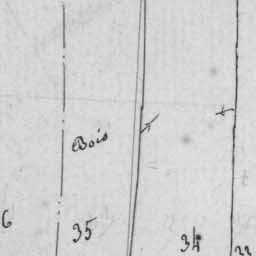 Bois
6
35
34